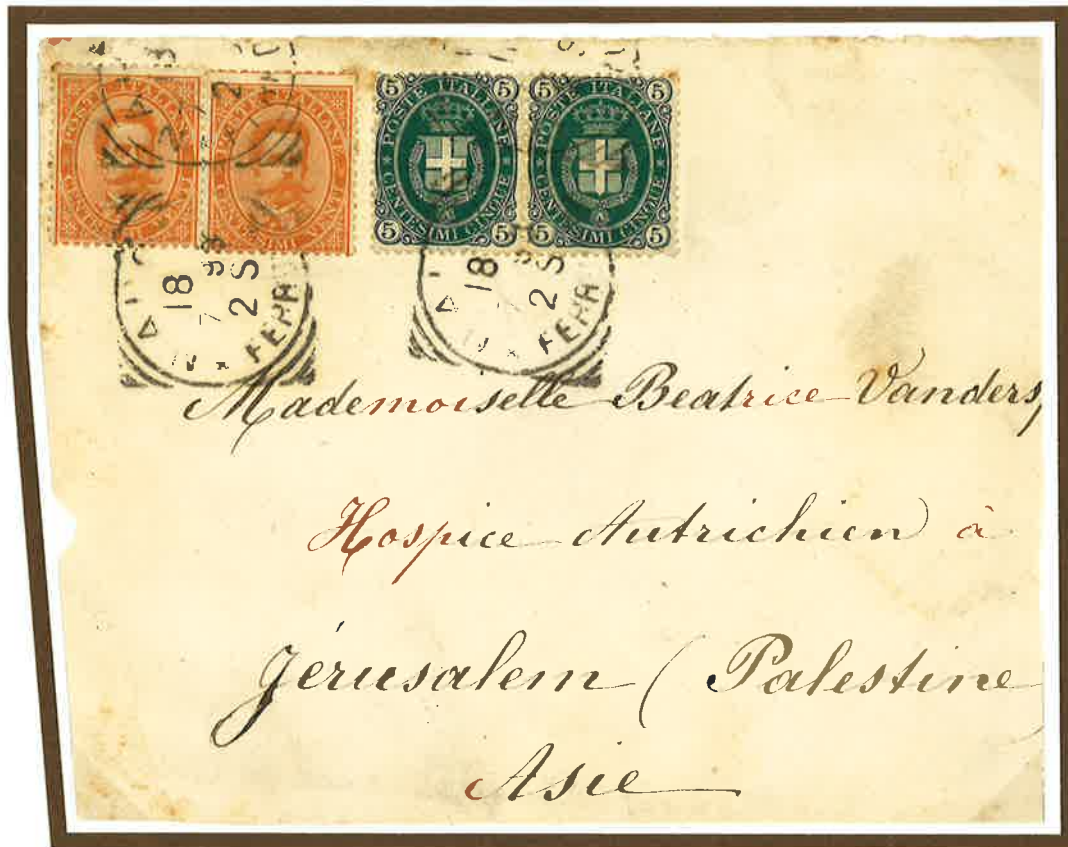 POSTE ITALIANE
CENTESIMI VENTI
POSTE ITALIANE
CENTESIMI VENTI
5 POSTE ITALIANE 5
5 CENTESIMI CINQUE 5
5 POSTE ITALIANE 5
5 CENTESIMI CINQUE 5
18
7
2 S
FERR
18
2 S
FERR
Mademoiselle Beatrice Vanders
Hospice Autrichien à
Jérusalem (Palestine
Asie